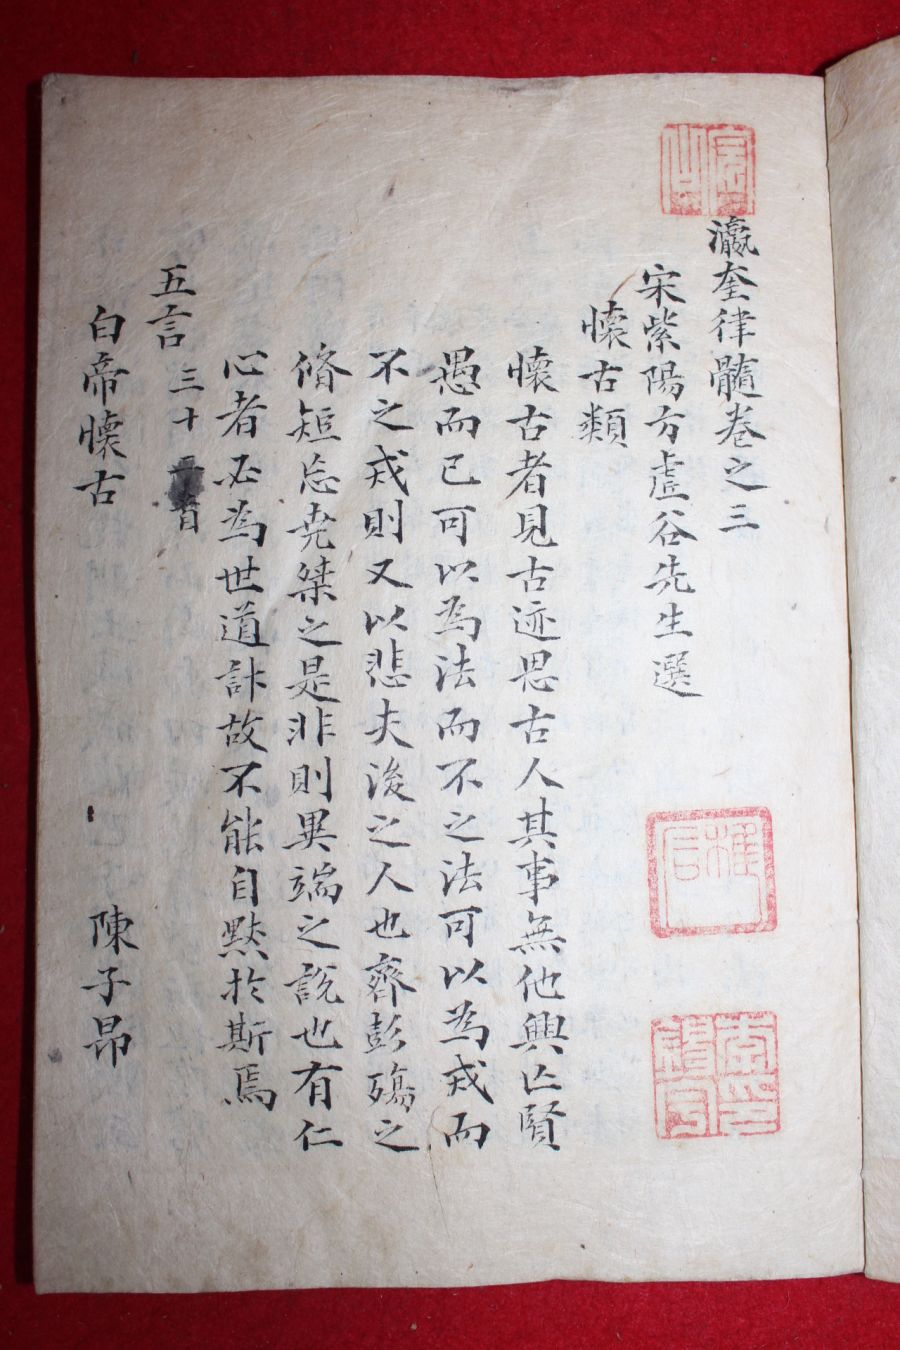 瀛奎律髓卷之三
宋紫陽方虛谷先生選
懷古類
懷古者見古迹思古人其事無他興亡賢
愚而已可以為法而不之法可以為戎而
不之戎則又以悲夫後之人也齊彭殤之
脩短忘堯桀之是非則異端之說也有仁
心者必為世道計故不能自默於斯焉
五言 三十 首
白帝懷古 陳子昂